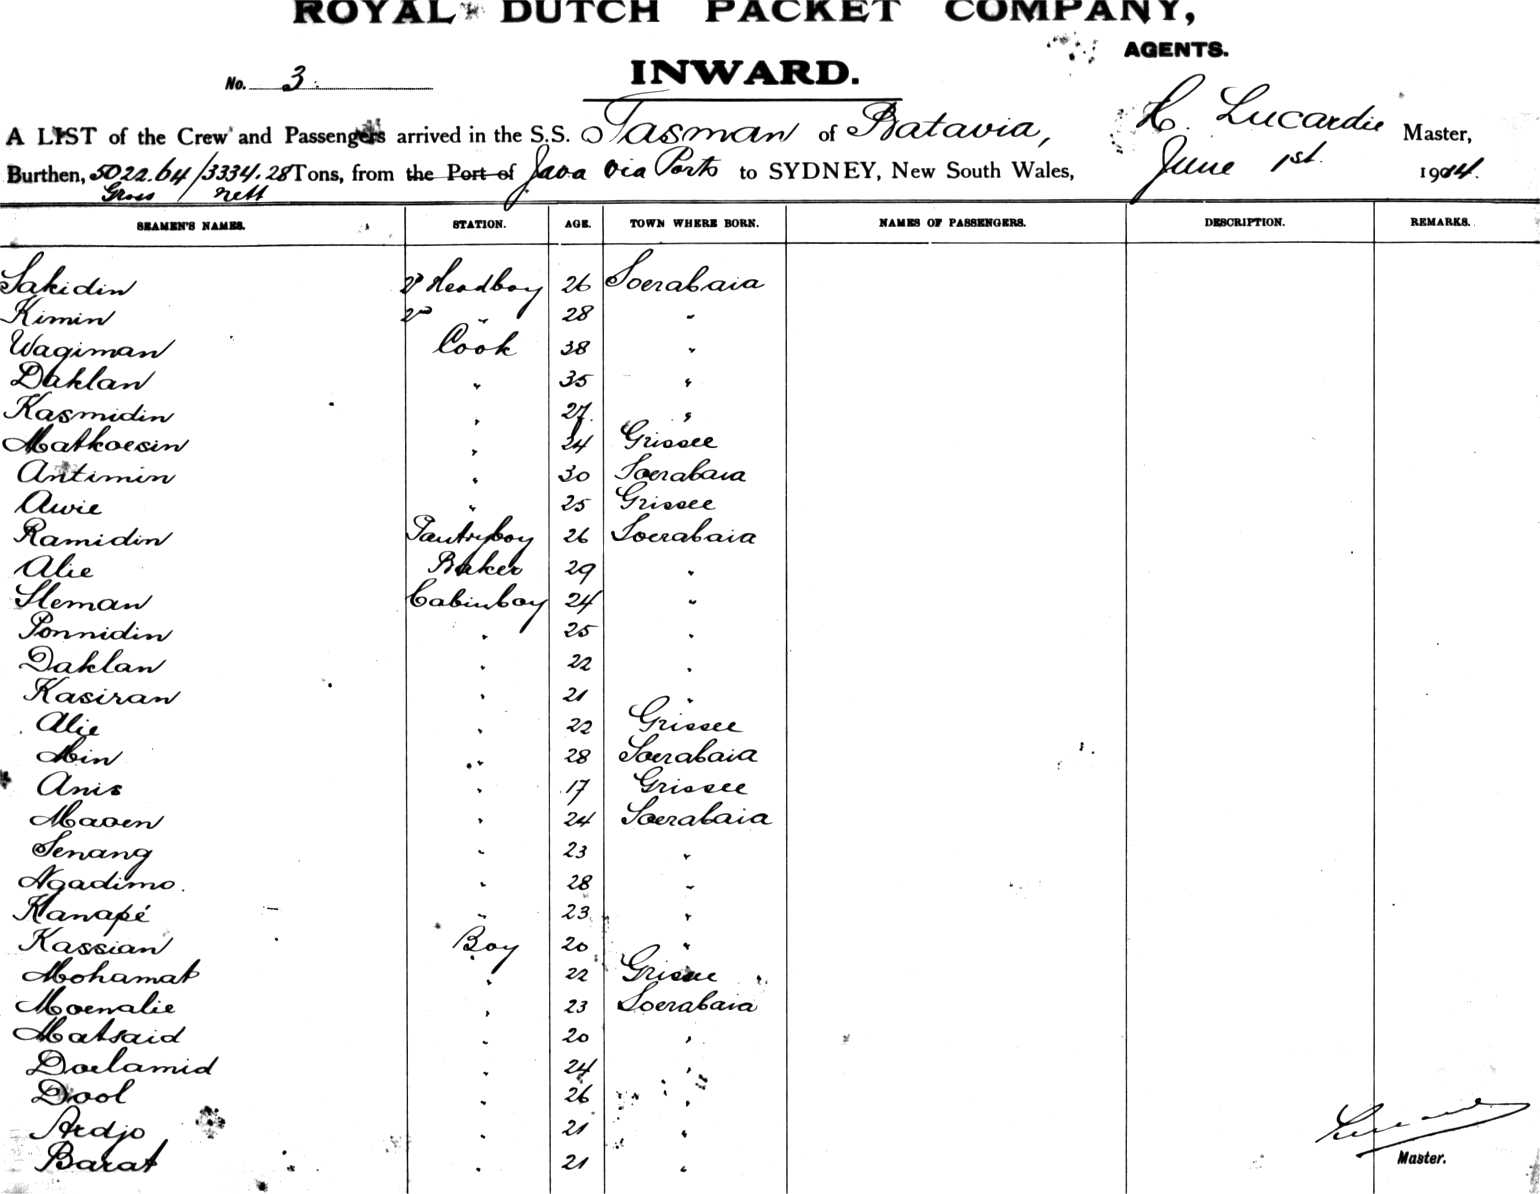 ROYAL DUTCH PACKET COMPANY,
AGENTS.
No. 3. INWARD.
A LIST of the Crew and Passengers arrived in the S.S. Tasman of Batavia, H. Lucardie Master,
Burthen, 5022.64/3334.28 Tons, from the Port of Java via Ports to SYDNEY, New South Wales, June 1st. 1914.
Gross / nett
SEAMEN'S NAMES. STATION. AGE. TOWN WHERE BORN. NAMES OF PASSENGERS. DESCRIPTION. REMARKS.
Sakidin Headboy 26 Soerabaia
Kimin " 28 "
Wagiman Cook 38 "
Daklan " 35 "
Kasmidin " 27 "
Matkoesin " 24 Grissee
Antimin " 30 Soerabaia
Awie " 25 Grissee
Ramidin Pantryboy 26 Soerabaia
Alie Baker 29 "
Sleman Cabinboy 24 "
Ponnidin " 25 "
Daklan " 22 "
Kasiran " 21 "
Alie " 22 Grissee
Min " 28 Soerabaia
Anis " 17 Grissee
Maoen " 24 Soerabaia
Senang " 23 "
Ngadimo. " 28 "
Kanapé " 23 "
Kassian Boy 20 "
Mohamat " 22 Grissee
Moenalie " 23 Soerabaia
Matsaid " 20 "
Doelamid " 24 "
Dool " 26 "
Ardjo " 21 "
Barat " 21 "
Master.